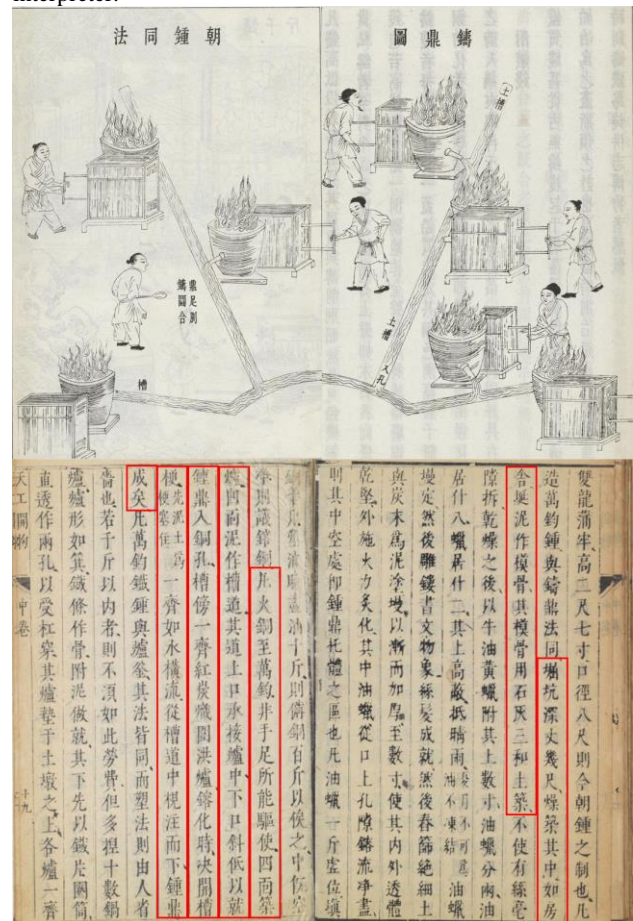 interpreter.
鑄鼎圖
朝鍾同法
土槽
土槽
入孔
鼎足別
鑄圖合
槽
雙龍蒲牢高二尺七寸口徑八尺則今朝鍾之制也凡
造萬鈞鍾與鑄鼎法同堀坑深丈幾尺燥築其中如房
舍埏泥作模骨其模骨用石灰三和土築不使有絲毫
隙拆乾燥之後以牛油黃蠟附其上數寸油蠟分兩油
居什八蠟居什二其上高蔽抵晴雨夏月不可爲油不凍結油蠟
墁定然後雕鏤書文物象絲髮成就然後舂篩絕細土
與炭末爲泥塗墁以漸而加厚至數寸使其內外透體
乾堅外施火力炙化其中油蠟從口上孔隙鎔流淨盡
則其中空處即鍾鼎托體之區也凡油蠟一斤虛位塡
銅十斤塑油時盡油十斤則備銅百斤以俟之中旣空
淨則議鎔銅凡火銅至萬鈞非手足所能驅使四面築
爐四面泥作槽道其道上口承接爐中下口斜低以就
鍾鼎入銅孔槽傍一齊紅炭熾圍洪爐鎔化時決開槽
梗先泥土爲梗塞住一齊如水橫流從槽道中梘注而下鍾鼎
成矣凡萬鈞鐵鍾與爐釜其法皆同而塑法則由人省
嗇也若千斤以內者則不須如此勞費但多捏十數鍋
爐爐形如箕鐵條作骨附泥做就其下先以鐵片圈筒
直透作兩孔以受杠穿其爐墊于土墩之上各爐一齊
天工開物 中卷 十九